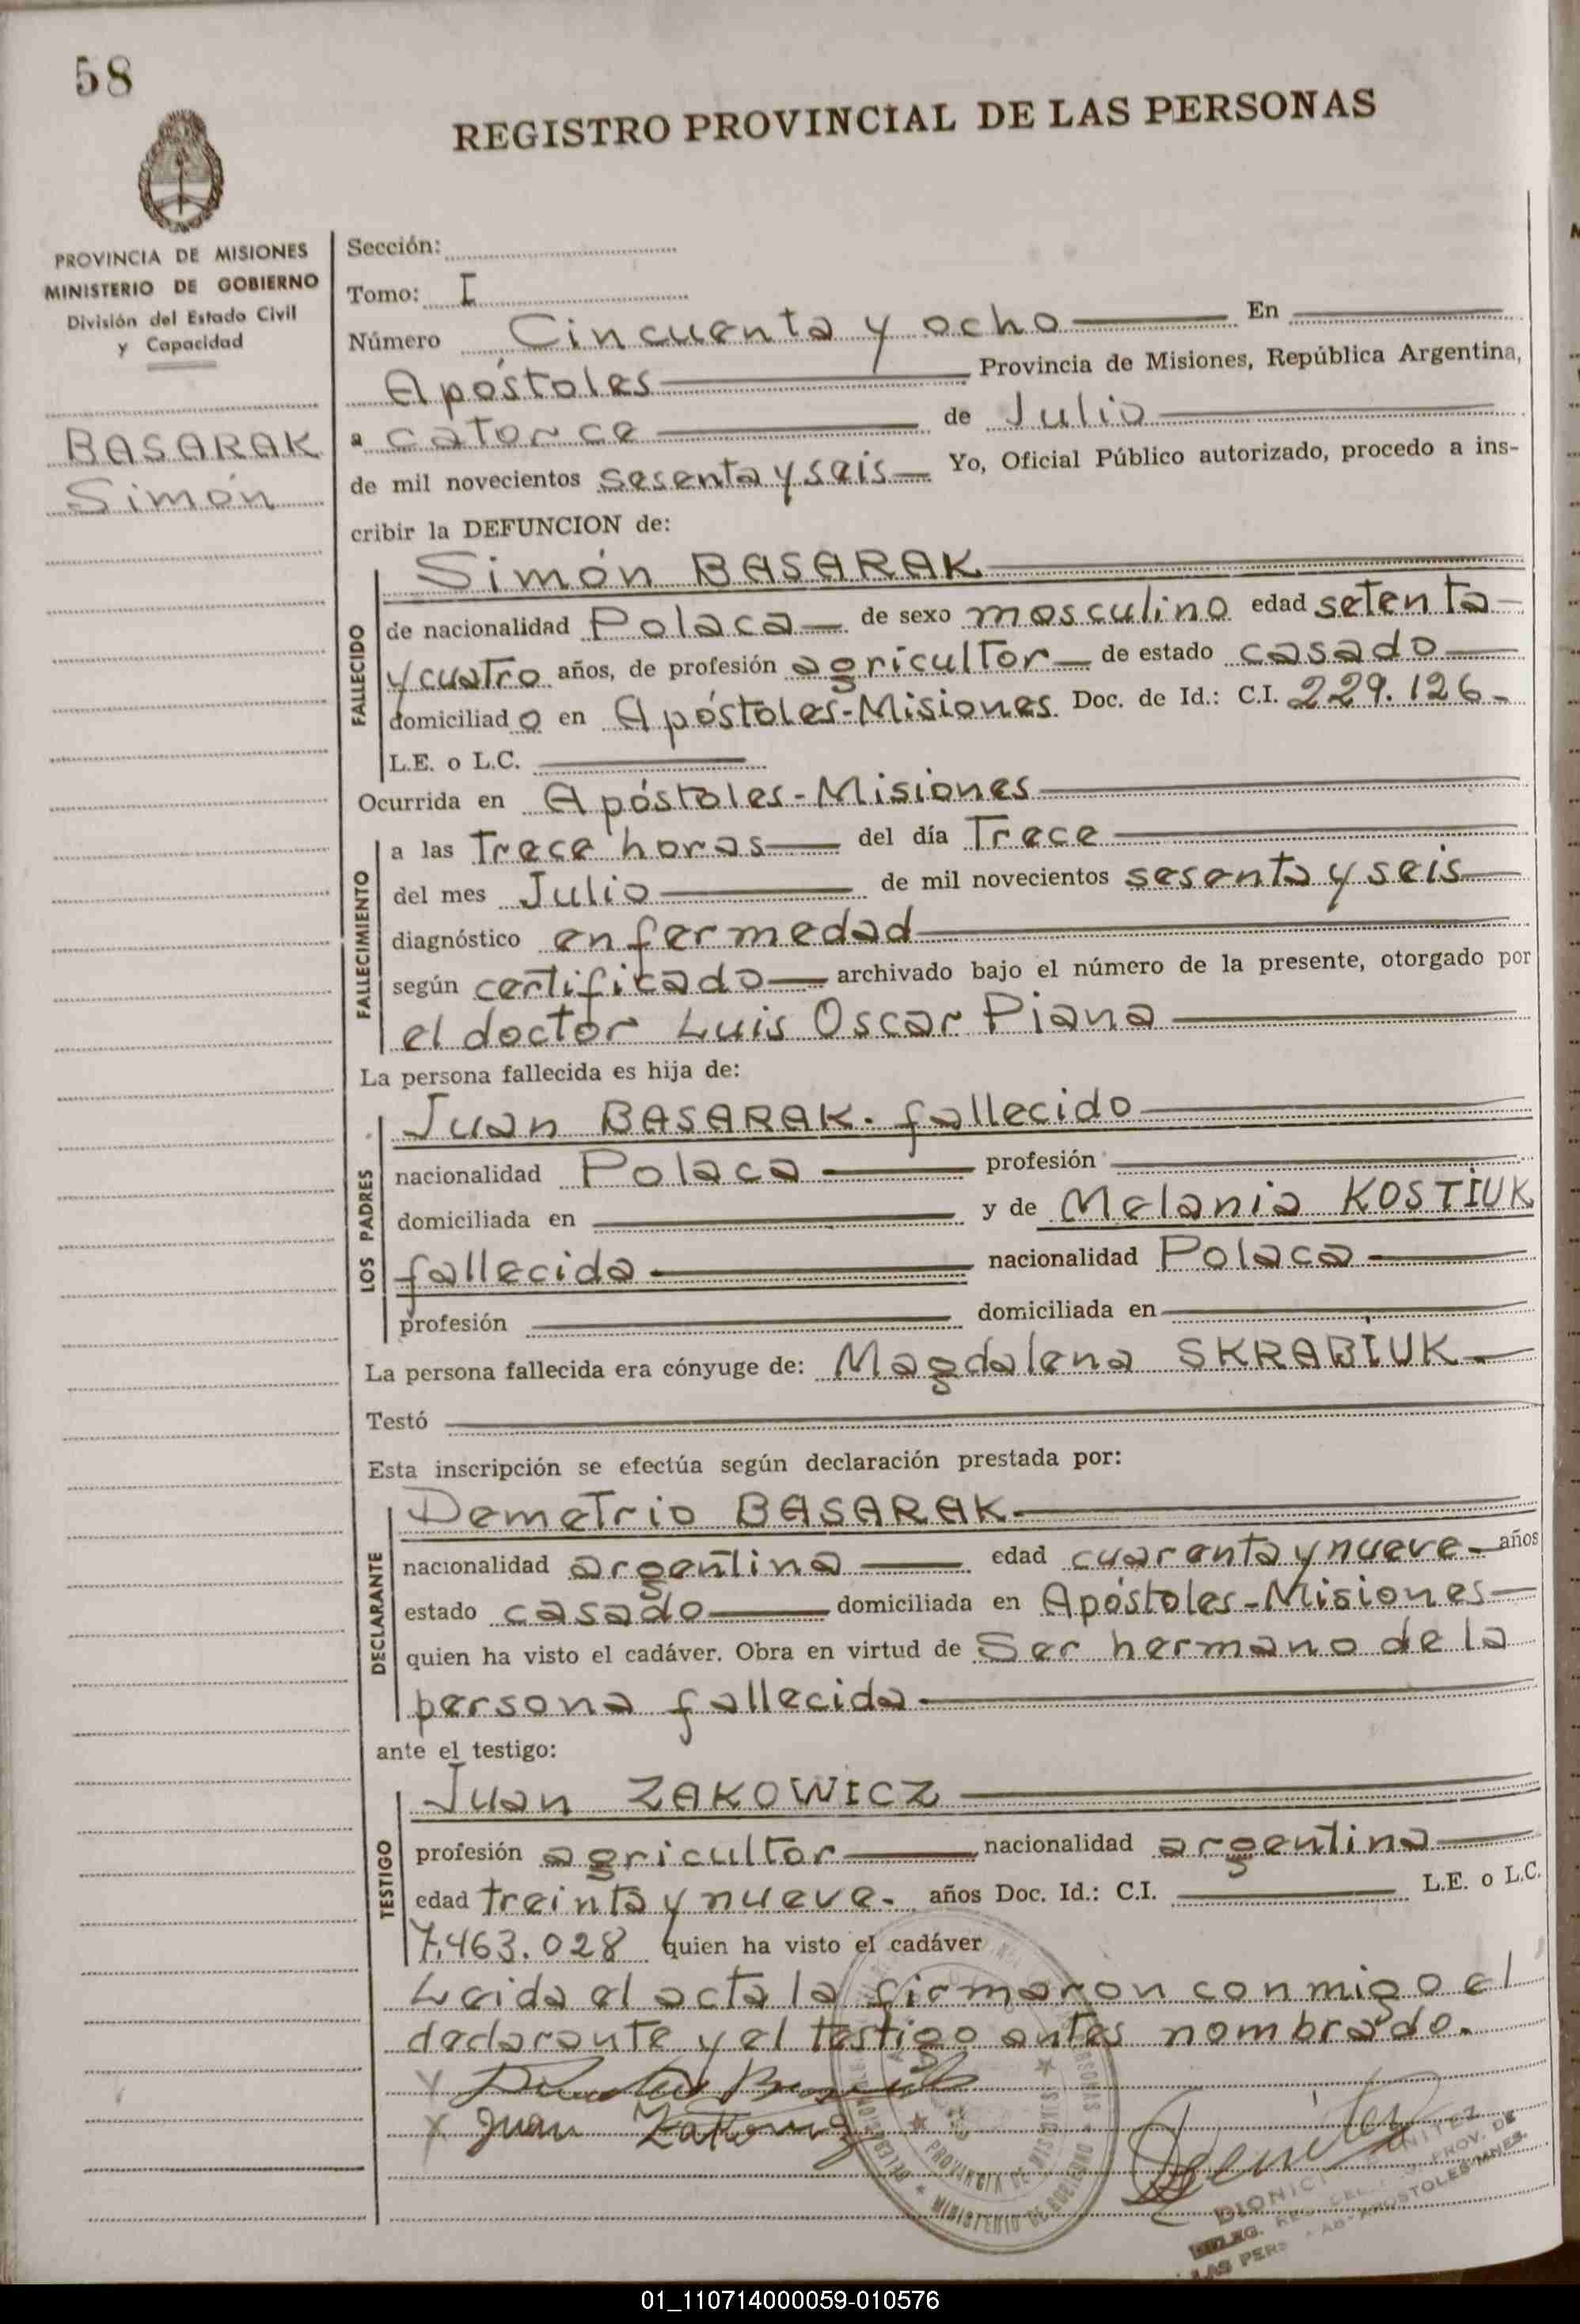 58
REGISTRO PROVINCIAL DE LAS PERSONAS
PROVINCIA DE MISIONES
MINISTERIO DE GOBIERNO
División del Estado Civil
y Capacidad
BASARAK
Simón
Sección:
Tomo: I
Número Cincuenta y ocho En
Apóstoles Provincia de Misiones, República Argentina,
a catorce de Julio
de mil novecientos sesenta y seis Yo, Oficial Público autorizado, procedo a ins-
cribir la DEFUNCION de:
FALLECIDO
Simón BASARAK
de nacionalidad Polaca de sexo masculino edad setenta
y cuatro años, de profesión agricultor de estado casado
domiciliado en Apóstoles-Misiones Doc. de Id.: C.I. 229.126-
L.E. o L.C.
Ocurrida en Apóstoles-Misiones
FALLECIMIENTO
a las Trece horas del día Trece
del mes Julio de mil novecientos sesenta y seis
diagnóstico enfermedad
según certificado archivado bajo el número de la presente, otorgado por
el doctor Luis Oscar Piana
La persona fallecida es hija de:
LOS PADRES
Juan BASARAK. fallecido
nacionalidad Polaca profesión
domiciliada en y de Melania KOSTIUK
fallecida nacionalidad Polaca
profesión domiciliada en
La persona fallecida era cónyuge de: Magdalena SKRABIUK
Testó
Esta inscripción se efectúa según declaración prestada por:
DECLARANTE
Demetrio BASARAK
nacionalidad argentina edad cuarenta y nueve años
estado casado domiciliada en Apóstoles-Misiones
quien ha visto el cadáver. Obra en virtud de Ser hermano de la
persona fallecida
ante el testigo:
TESTIGO
Juan ZAKOWICZ
profesión agricultor nacionalidad argentina
edad treinta y nueve años Doc. Id.: C.I. L.E. o L.C.
7.463.028 quien ha visto el cadáver
Leida el acta la firmaron conmigo el
declarante y el testigo antes nombrado.
Juan
PROVINCIA DE MISIONES
MINISTERIO DE GOBIERNO
APOSTOLES MNES.
01_110714000059-010576